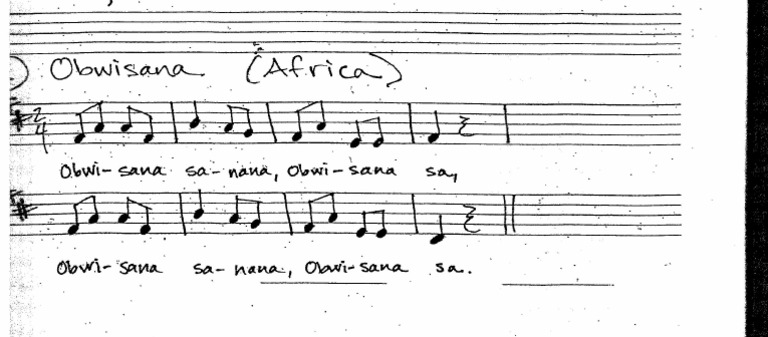 Obwisana (Africa)
2
4
Obwi-sana sa-nana, Obwi-sana sa,
Obwi-sana sa-nana, Obwi-sana sa.